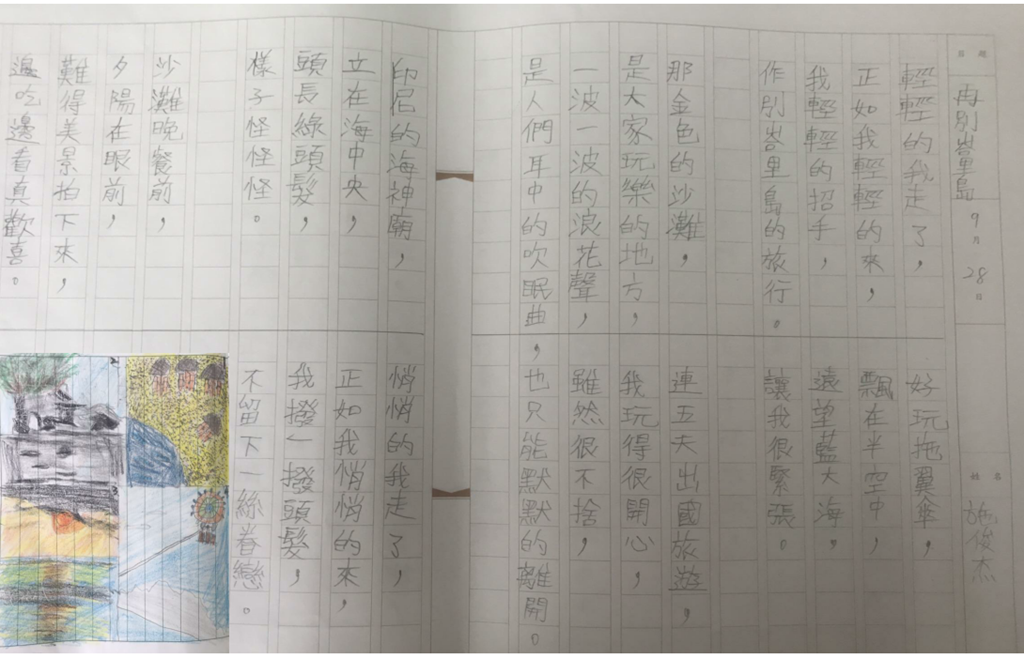 題目
再別峇里島 9月28日
姓名
施俊杰
輕輕的我走了，
正如我輕輕的來，
我輕輕的招手，
作別峇里島的旅行。
那金色的沙灘，
是大家玩樂的地方，
一波一波的浪花聲，
是人們耳中的吹眠曲，
印尼的海神廟，
立在海中央，
頭長綠頭髮，
樣子怪怪。
沙灘晚餐前，
夕陽在眼前，
難得美景拍下來，
邊吃邊看真歡喜。
好玩拖翼傘，
飄在半空中，
遠望藍大海。
讓我很緊張。
連五天出國旅遊，
我玩得很開心，
雖然很不捨，
也只能默默的離開。
悄悄的我走了，
正如我悄悄的來，
我撥一撥頭髮，
不留下一絲眷戀。